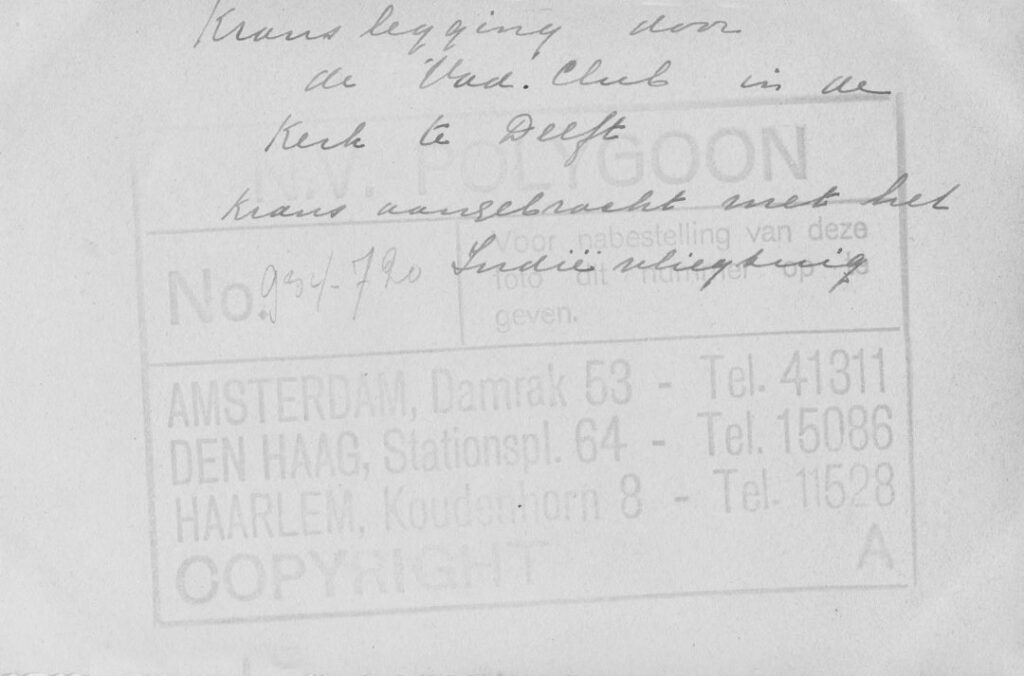 Kranslegging door
de Vad. Club in de
Kerk te Delft
krans aangebracht met het
Indië vliegtuig
N.V. POLYGOON
No. 934-720
Voor nabestelling van deze
foto dit nummer op te
geven.
AMSTERDAM, Damrak 53 - Tel. 41311
DEN HAAG, Stationspl. 64 - Tel. 15086
HAARLEM, Koudenhorn 8 - Tel. 11528
COPYRIGHT A